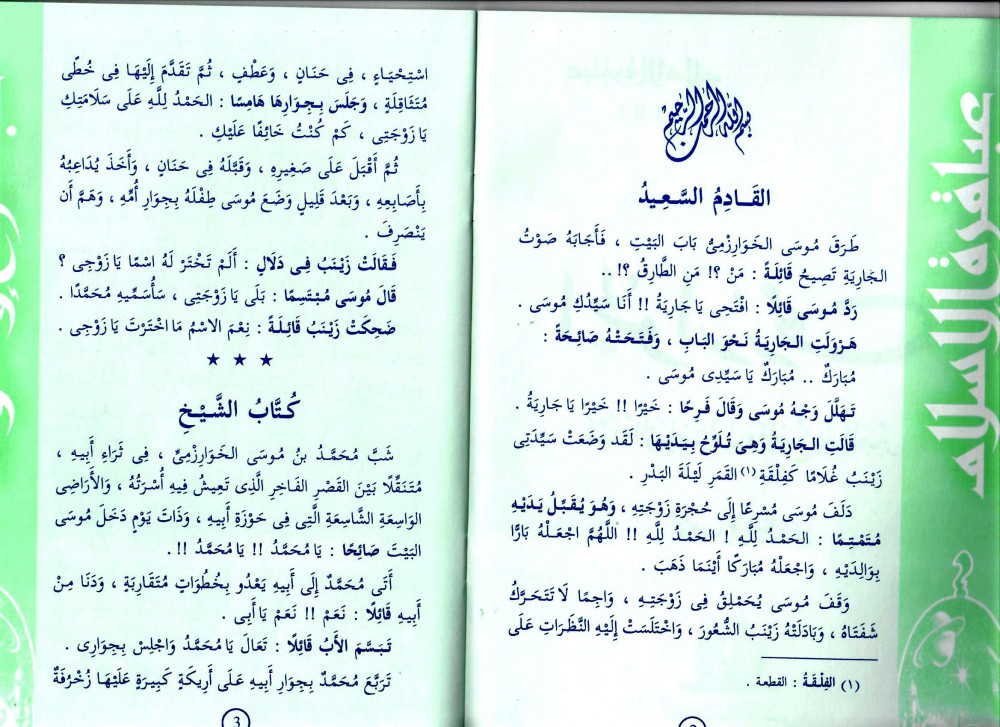 بسم الله الرحمن الرحيم
القَادِمُ السَّعِيدُ
طَرَقَ مُوسَى الخَوَارِزْمِىُّ بَابَ البَيْتِ ، فَأَجَابَهُ صَوْتُ
الجَارِيَةِ تَصِيحُ قَائِلَةً : مَنْ ؟! مَنِ الطَّارِقُ ؟! ..
رَدَّ مُوسَى قَائِلًا : افْتَحِى يَا جَارِيَةُ !! أَنَا سَيِّدُكِ مُوسَى .
هَرْوَلَتِ الجَارِيَةُ نَحْوَ البَابِ ، وَفَتَحَتْهُ صَائِحَةً :
مُبَارَكٌ .. مُبَارَكٌ يَا سَيِّدِى مُوسَى .
تَهَلَّلَ وَجْهُ مُوسَى وَقَالَ فَرِحًا : خَيْرًا !! خَيْرًا يَا جَارِيَةُ .
قَالَتِ الجَارِيَةُ وَهِىَ تُلَوِّحُ بِيَدَيْهَا : لَقَد وَضَعَتْ سَيِّدَتِى
زَيْنَبُ غُلَامًا كَفِلْقَةِ (١) القَمَرِ لَيْلَةَ البَدْرِ .
دَلَفَ مُوسَى مُسْرِعًا إِلَى حُجْرَةِ زَوْجَتِهِ ، وَهُوَ يُقَبِّلُ يَدَيْهِ
مُتَمْتِمًا : الحَمْدُ لِلَّهِ ! الحَمْدُ لِلَّهِ !! اللَّهُمَّ اجْعَلْهُ بَارًّا
بِوَالِدَيْهِ ، وَاجْعَلْهُ مُبَارَكًا أَيْنَمَا ذَهَبَ .
وَقَفَ مُوسَى يُحَمْلِقُ فِى زَوْجَتِهِ ، وَاجِمًا لَا تَتَحَرَّكُ
شَفَتَاهُ ، وَبَادَلَتْهُ زَيْنَبُ الشُّعُورَ ، وَاخْتَلَسَتْ إِلَيْهِ النَّظَرَاتِ عَلَى
(١) الفِلْقَةُ : القطعة .
عباقرة الإسلام
اسْتِحْيَاءٍ ، فِى حَنَانٍ ، وَعَطْفٍ ، ثُمَّ تَقَدَّمَ إِلَيْهَا فِى خُطًى
مُتَثَاقِلَةٍ ، وَجَلَسَ بِجِوَارِهَا هَامِسًا : الحَمْدُ لِلَّهِ عَلَى سَلَامَتِكِ
يَا زَوْجَتِى ، كَمْ كُنْتُ خَائِفًا عَلَيْكِ .
ثُمَّ أَقْبَلَ عَلَى صَغِيرِهِ ، وَقَبَّلَهُ فِى حَنَانٍ ، وَأَخَذَ يُدَاعِبُهُ
بِأَصَابِعِهِ ، وَبَعْدَ قَلِيلٍ وَضَعَ مُوسَى طِفْلَهُ بِجِوَارِ أُمِّهِ ، وَهَمَّ أَن
يَنْصَرِفَ .
فَقَالَتْ زَيْنَبُ فِى دَلَالٍ : أَلَمْ تَخْتَرْ لَهُ اسْمًا يَا زَوْجِى ؟
قَالَ مُوسَى مُبْتَسِمًا : بَلَى يَا زَوْجَتِى ، سَأُسَمِّيهِ مُحَمَّدًا .
ضَحِكَتْ زَيْنَبُ قَائِلَةً : نِعْمَ الاسْمُ مَا اخْتَرْتَ يَا زَوْجِى .
★ ★ ★
كُتَّابُ الشَّيْخِ
شَبَّ مُحَمَّدُ بنُ مُوسَى الخَوَارِزْمِىِّ ، فِى ثَرَاءِ أَبِيهِ ،
مُتَنَقِّلًا بَيْنَ القَصْرِ الفَاخِرِ الَّذِى تَعِيشُ فِيهِ أُسْرَتُهُ ، وَالأَرَاضِى
الوَاسِعَةِ الشَّاسِعَةِ الَّتِى فِى حَوْزَةِ أَبِيهِ ، وَذَاتَ يَوْمٍ دَخَلَ مُوسَى
البَيْتَ صَائِحًا : يَا مُحَمَّدُ !! يَا مُحَمَّدُ !! .
أَتَى مُحَمَّدٌ إِلَى أَبِيهِ يَعْدُو بِخُطُوَاتٍ مُتَقَارِبَةٍ ، وَدَنَا مِنْ
أَبِيهِ قَائِلًا : نَعَمْ !! نَعَمْ يَا أَبِى .
تَبَسَّمَ الأَبُ قَائِلًا : تَعَالَ يَا مُحَمَّدُ وَاجْلِسْ بِجِوَارِى .
تَرَبَّعَ مُحَمَّدٌ بِجِوَارِ أَبِيهِ عَلَى أَرِيكَةٍ كَبِيرَةٍ عَلَيْهَا زُخْرُفَةٌ
3